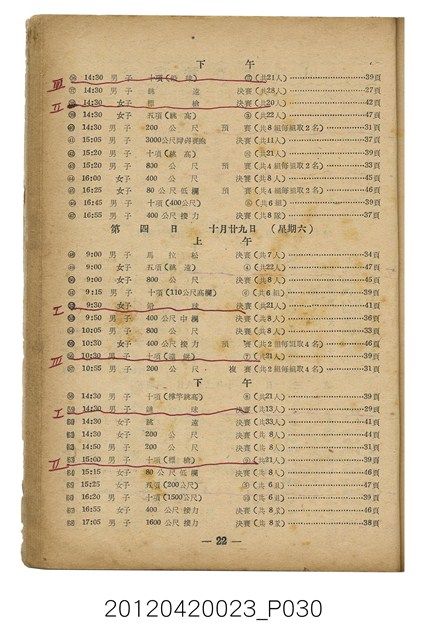 下午
14:30 男子 十項 (共21人) 39頁
14:30 男子 跳遠 決賽 (共28人) 27頁
14:30 女子 標槍 決賽 (共20人) 42頁
14:30 女子 五項 (跳高) (共22人) 47頁
14:30 男子 200公尺 預賽 (共8組每組取2名) 31頁
15:05 男子 3000公尺障碍賽跑 決賽 (共11人) 37頁
15:20 男子 十項 (跳高) (共21人) 39頁
15:20 男子 800公尺 預賽 (共4組每組取2名) 33頁
16:00 女子 400公尺 決賽 (共8人) 45頁
16:25 女子 80公尺低欄 預賽 (共4組每組取2名) 46頁
16:45 男子 十項 (400公尺) (共6組) 39頁
16:55 男子 400公尺接力 決賽 (共8隊) 37頁
第四日 十月廿九日 (星期六)
上午
9:00 男子 馬拉松 決賽 (共7人) 34頁
9:00 女子 五項 (跳遠) (共22人) 47頁
9:00 女子 800公尺 決賽 (共8人) 45頁
9:15 男子 十項 (110公尺高欄) (共6組) 39頁
9:30 女子 決賽 (共21人) 41頁
9:50 男子 400公尺中欄 決賽 (共8人) 36頁
10:05 男子 800公尺 決賽 (共8人) 33頁
10:05 女子 400公尺接力 預賽 (共2組每組取4名) 46頁
10:30 男子 十項 (鐵餅) (共21人) 39頁
10:55 男子 200公尺 複賽 (共2組每組取4名) 31頁
下午
14:30 男子 十項 (撑竿跳高) (共21人) 39頁
14:30 男子 決賽 (共13人) 29頁
14:30 女子 跳遠 決賽 (共33人) 41頁
14:30 女子 200公尺 決賽 (共8人) 44頁
14:50 男子 200公尺 決賽 (共8人) 31頁
15:00 男子 十項 (標槍) (共21人) 39頁
15:15 女子 80公尺低欄 決賽 (共8人) 46頁
15:25 女子 五項 (200公尺) (共6組) 47頁
16:20 男子 十項 (1500公尺) (共6組) 39頁
16:55 女子 400公尺接力 決賽 (共8隊) 46頁
17:05 男子 1600公尺接力 決賽 (共8隊) 38頁
— 22 —
20120420023_P030